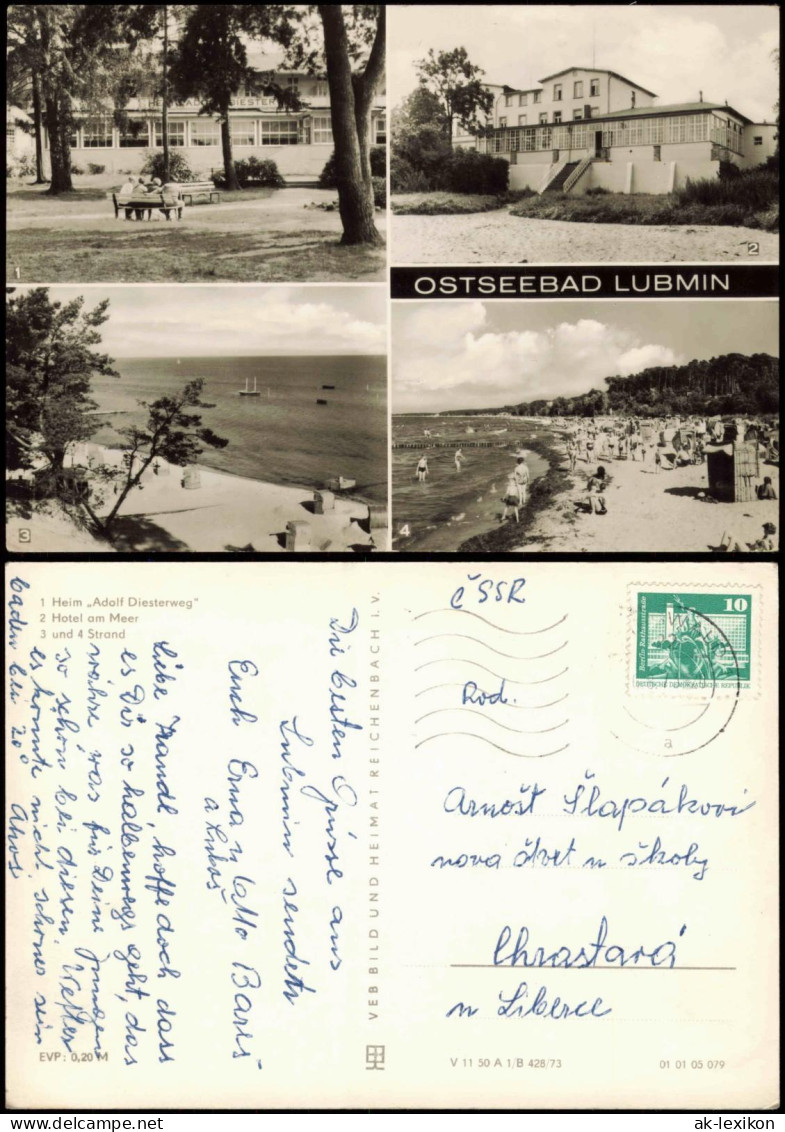 1
2
OSTSEEBAD LUBMIN
3
4
1 Heim „Adolf Diesterweg"
2 Hotel am Meer
3 und 4 Strand
Die besten Grüsse aus
Lubmin sendet
Euch Erna u Otto Bareš
Liebe Mandl, hoffe doch dass
es Dir so halbwegs geht, das
wahre was für Deine Jungen
so schön bei diesen Wetter
es konnte nicht schöner sein
baden bei 20°
Ahoi
EVP: 0,20 M
VEB BILD UND HEIMAT REICHENBACH i. V.
ČSSR
10
Berlin Rathausstraße
DEUTSCHE DEMOKRATISCHE REPUBLIK
a
Rod.
Arnošt Šlapákovi
nova čtvet u školy
Chrastavá
u Liberce
V 11 50 A 1/B 428/73
01 01 05 079
ak-lexikon